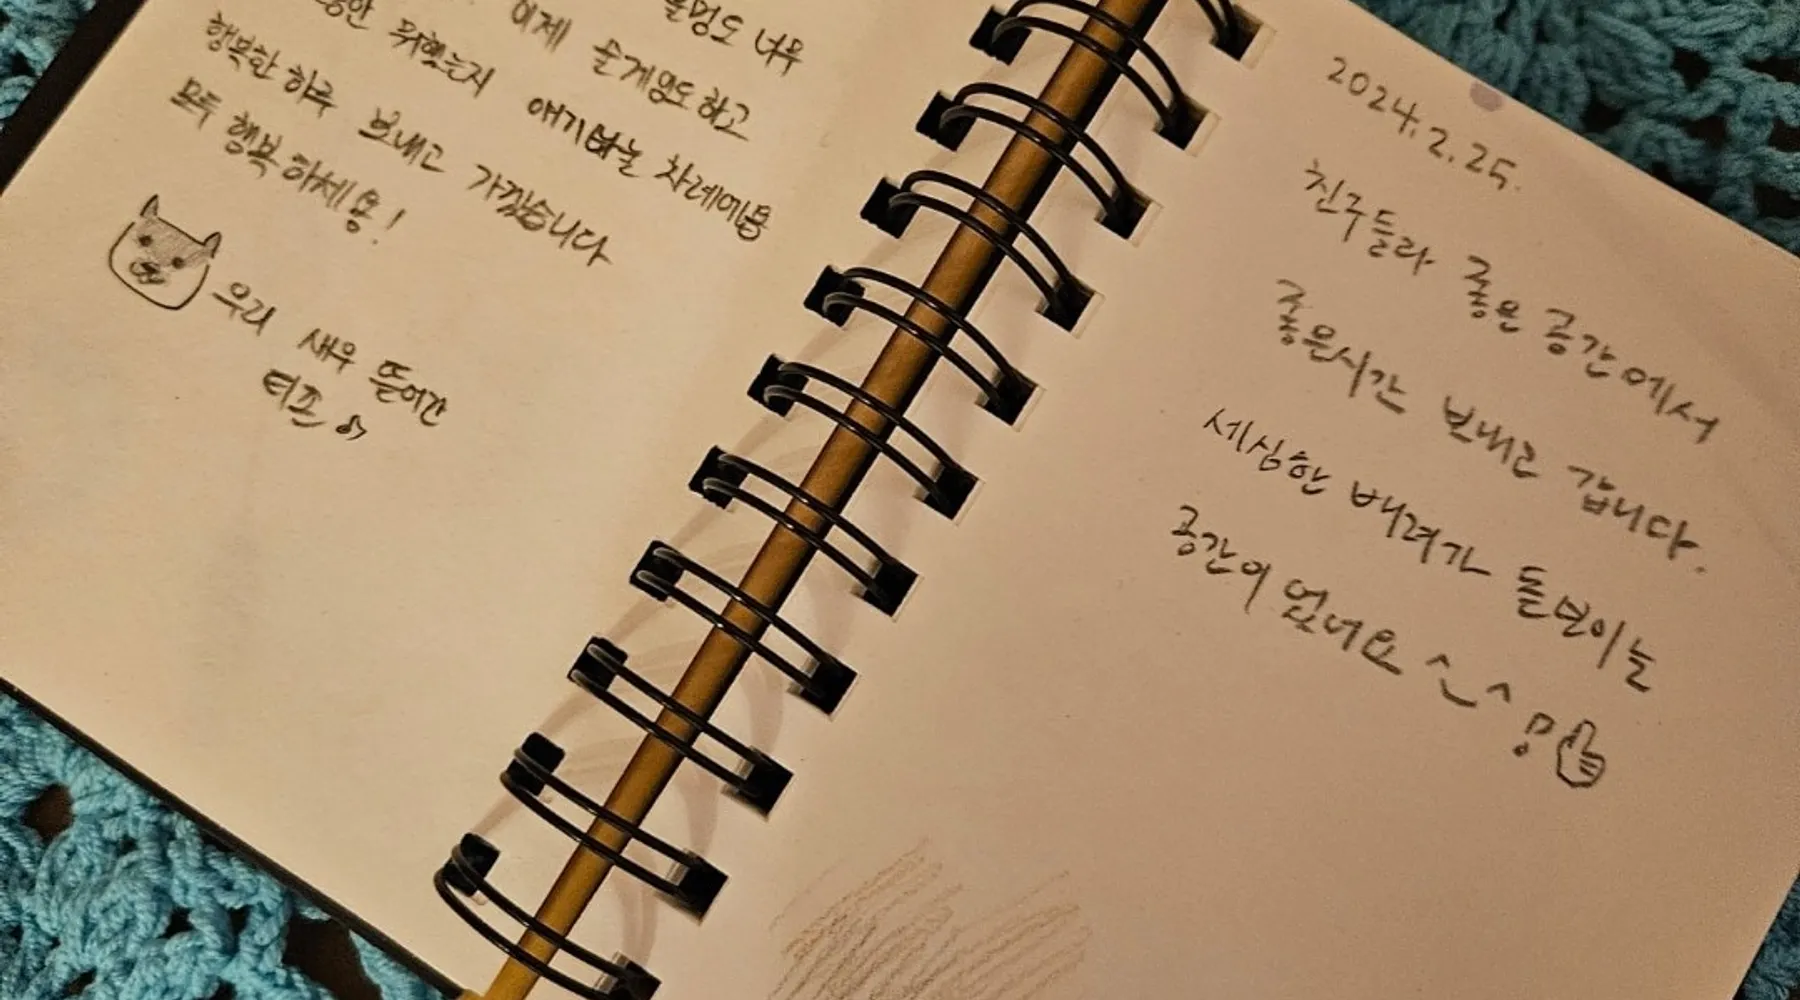 불멍도 너무
이제 술게임도 하고
뭐했는지 얘기하는 차례예용
행복한 하루 보내고 가겠습니다
모두 행복하세용!
우리 새우 뜯어간
터즈
2024.2.25.
친구들과 좋은 공간에서
좋은시간 보내고 갑니다.
세심한 배려가 돋보이는
공간이었네요 ^_^!